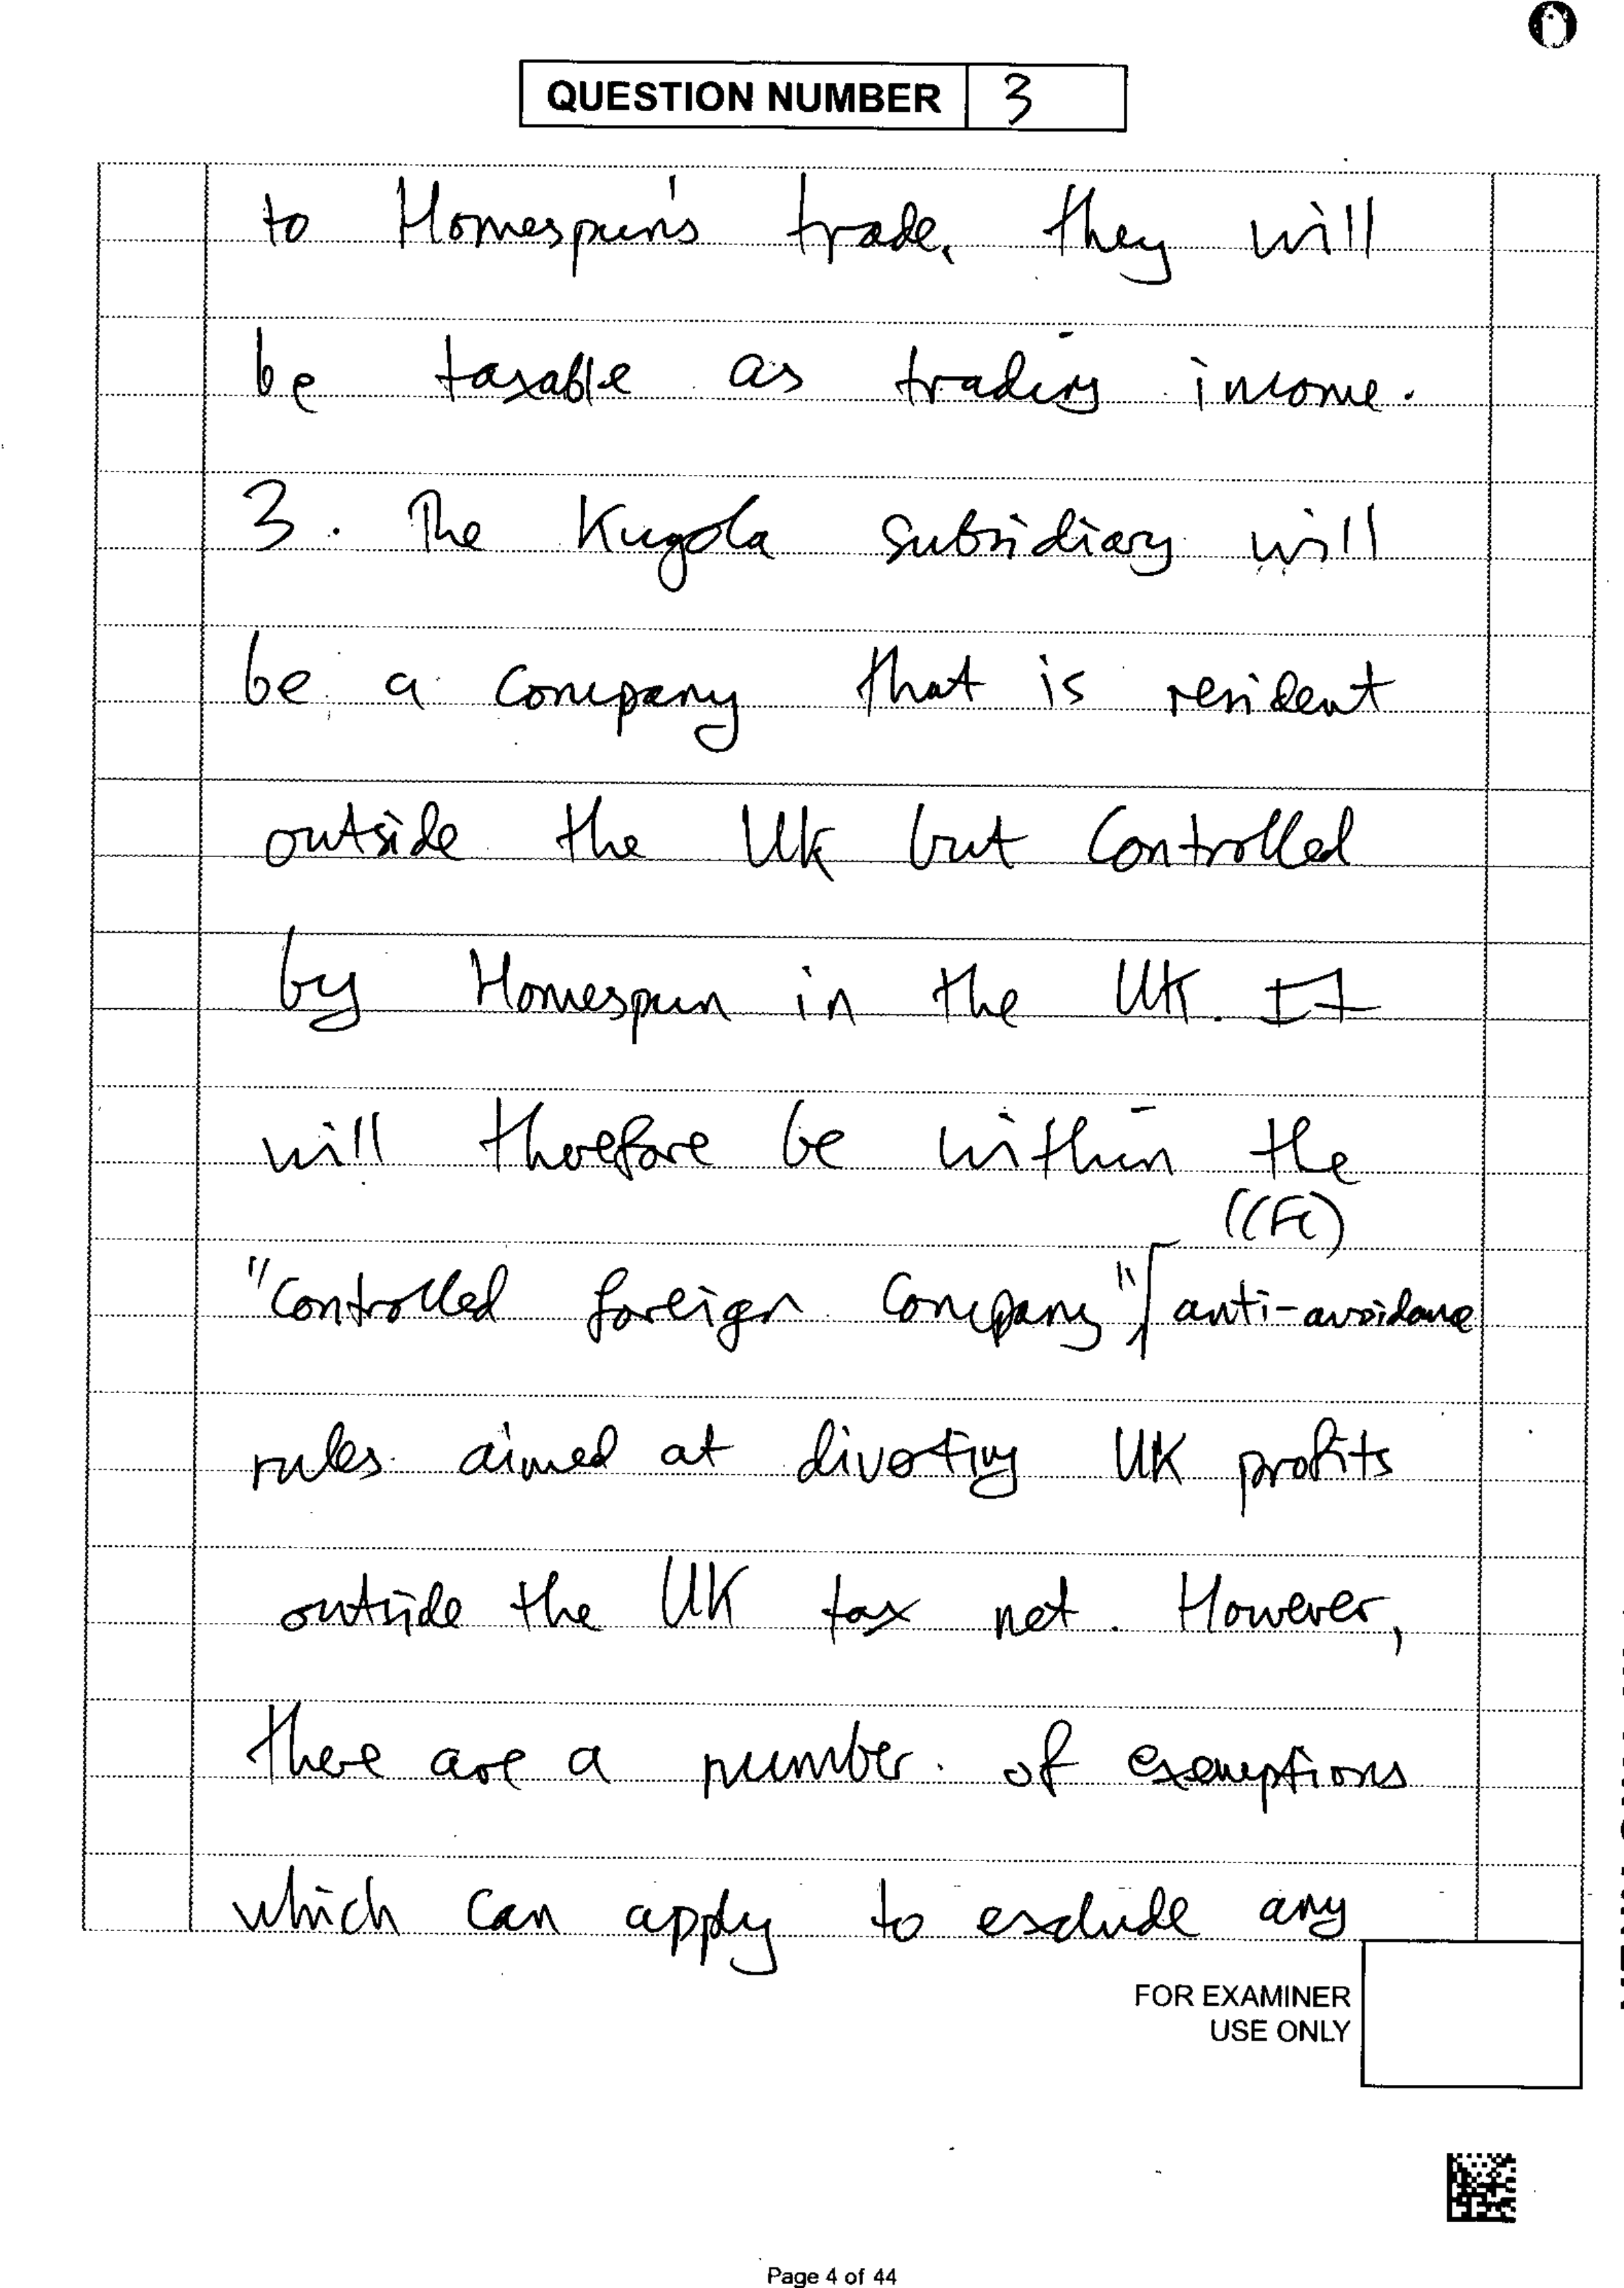 QUESTION NUMBER 3
to Homespun's trade, they will
be taxable as trading income.
3. The Kugola subsidiary will
be a company that is resident
outside the UK but controlled
by Homespun in the UK. It
will therefore be within the
(CFC)
"controlled foreign company" anti-avoidance
rules aimed at diverting UK profits
outside the UK tax net. However,
there are a number of exemptions
which can apply to exclude any
FOR EXAMINER
USE ONLY
Page 4 of 44